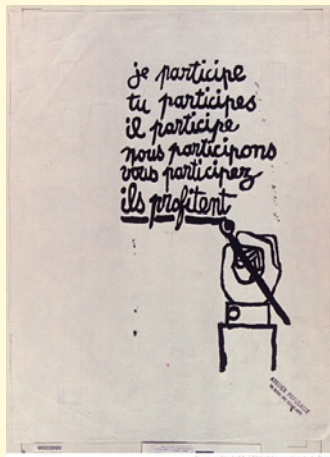 je participe
tu participes
il participe
nous participons
vous participez
ils profitent
ATELIER POPULAIRE